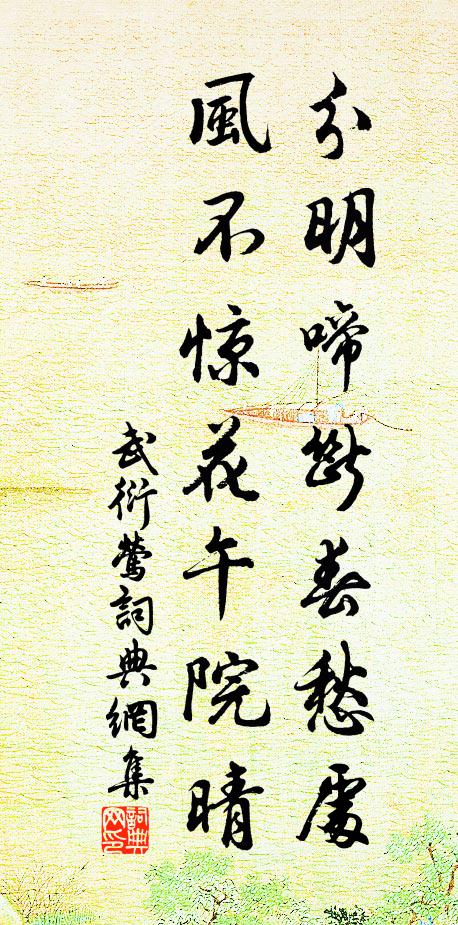 分明啼斷春愁處
風不惊花午院晴
武衍鶯詞典網集
詞典
网印